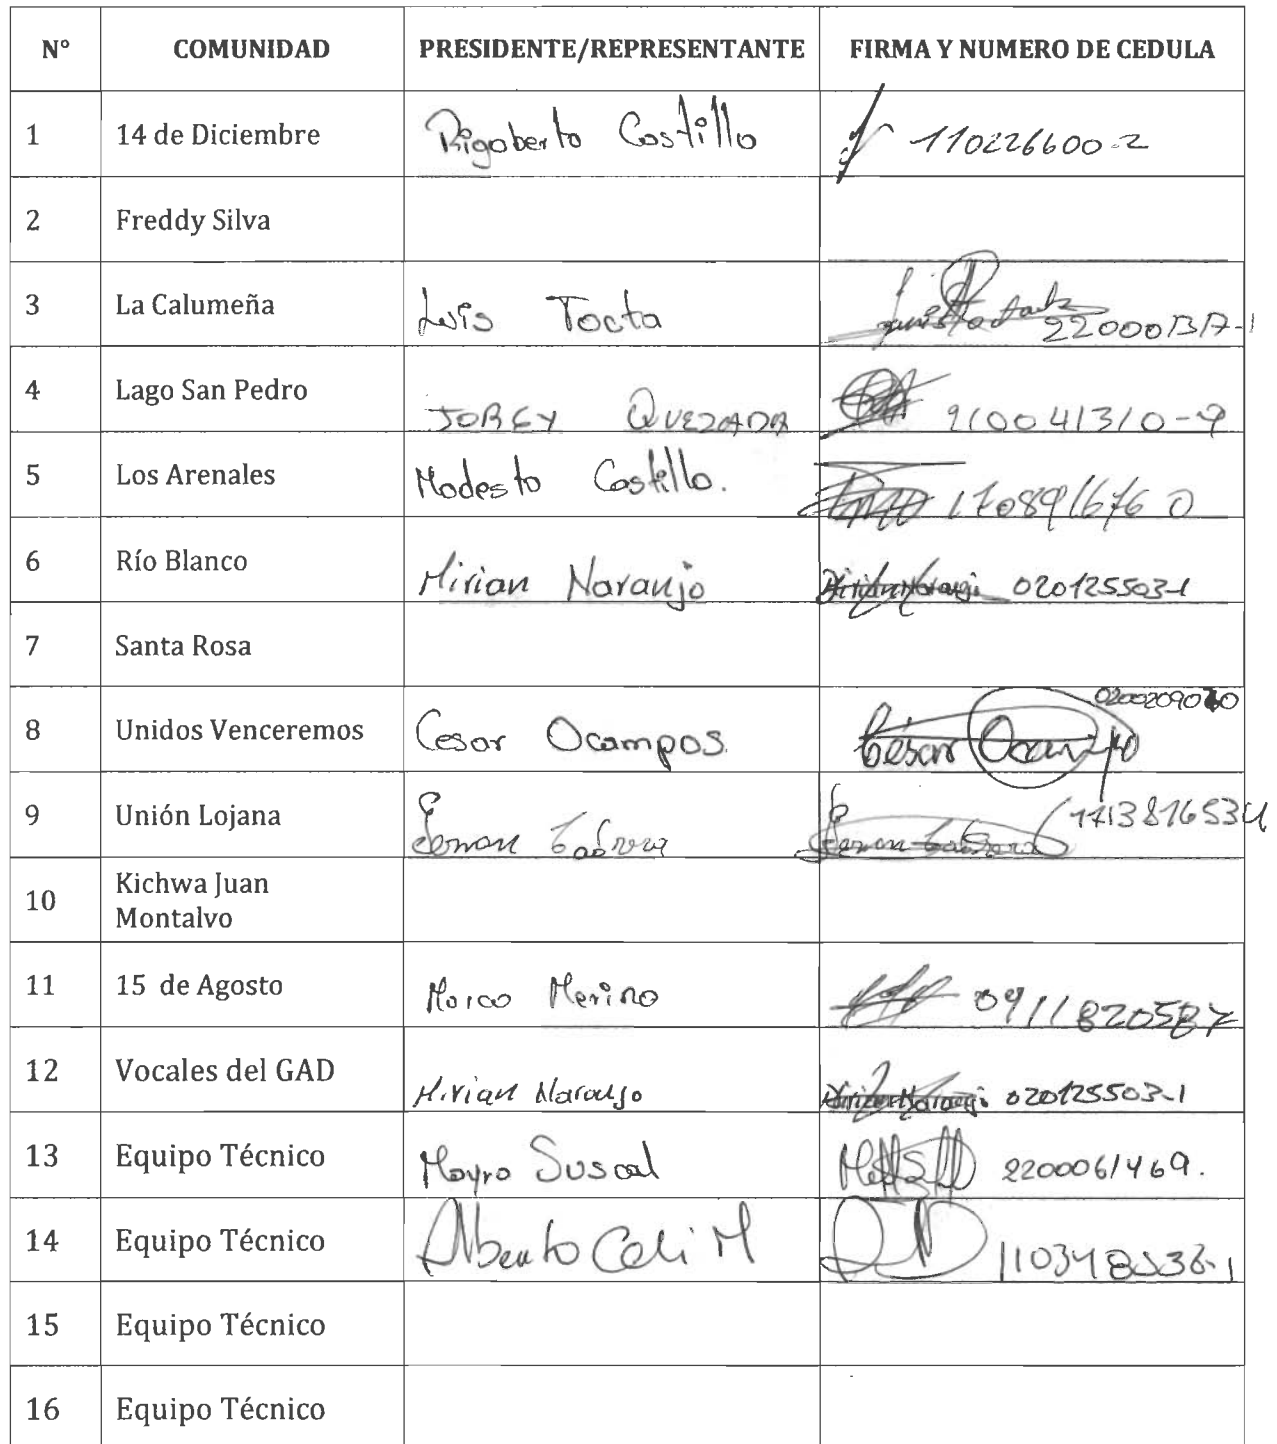 N° COMUNIDAD PRESIDENTE/REPRESENTANTE FIRMA Y NUMERO DE CEDULA
1 14 de Diciembre Rigoberto Castillo 110226600-2
2 Freddy Silva
3 La Calumeña Luis Tocta
4 Lago San Pedro JORGY QUEZADA
5 Los Arenales Modesto Castillo. 170891676 0
6 Río Blanco Mirian Naranjo Mirian Naranjo 020125503-1
7 Santa Rosa
8 Unidos Venceremos Cesar Ocampos. César Ocampo
9 Unión Lojana Cabrera 1713816534
10 Kichwa Juan
Montalvo
11 15 de Agosto Marco Merino 0911820587
12 Vocales del GAD Mirian Naranjo Mirian Naranjo 020125503-1
13 Equipo Técnico Mayra Suscal 2200061469.
14 Equipo Técnico Alberto Celi M
15 Equipo Técnico
16 Equipo Técnico